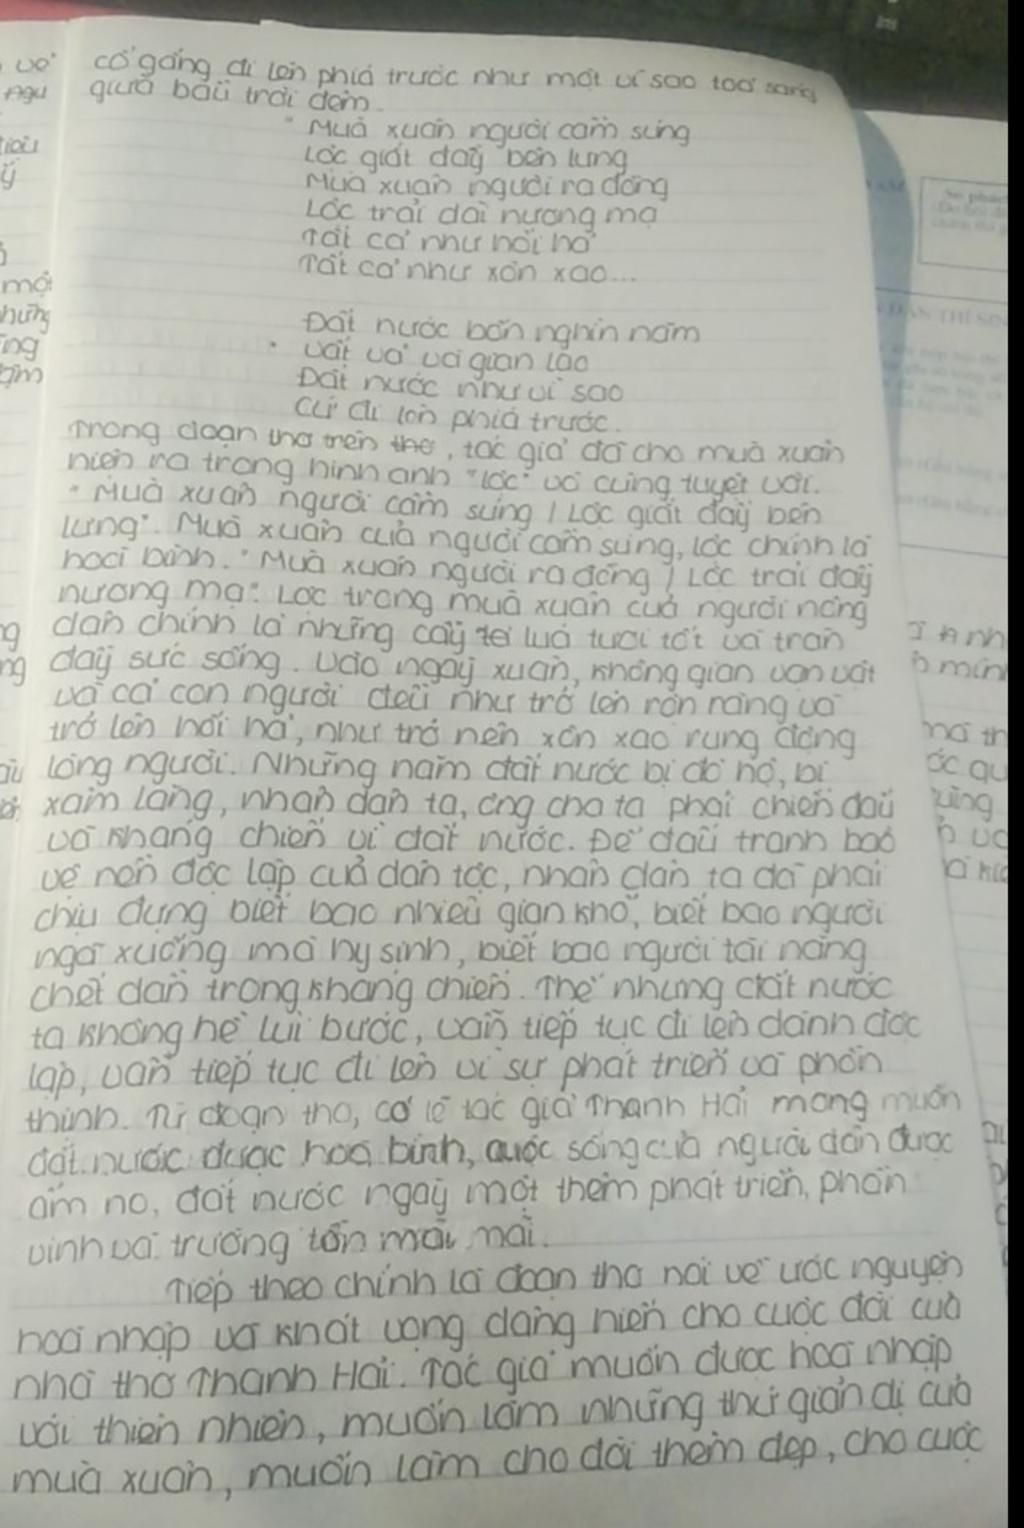 cố gắng đi lên phía trước như một vì sao toả sáng
giữa bầu trời đêm.
"Mùa xuân người cầm súng
Lộc giắt đầy bên lưng
Mùa xuân người ra đồng
Lộc trải dài nương mạ
Tất cả như hối hả
Tất cả như xôn xao...
Đất nước bốn nghìn năm
Vất vả và gian lao
Đất nước như vì sao
Cứ đi lên phía trước.
Trong đoạn thơ trên thơ, tác giả đã cho mùa xuân
hiện ra trong hình ảnh "lộc" vô cùng tuyệt vời.
"Mùa xuân người cầm súng / Lộc giắt đầy bên
lưng". Mùa xuân của người cầm súng, lộc chính là
hoà bình. "Mùa xuân người ra đồng / Lộc trải đầy
nương mạ". Lộc trong mùa xuân của người nông
dân chính là những cây lúa tươi tốt và tràn
đầy sức sống. Vào ngày xuân, không gian vạn vật
và cả con người đều như trở lên rộn ràng và
trở lên hối hả, như trở nên xôn xao rung động
lòng người. Những năm đất nước bị đô hộ, bị
xâm lăng, nhân dân ta, ông cha ta phải chiến đấu
và kháng chiến vì đất nước. Để đấu tranh bảo
vệ nền độc lập của dân tộc, nhân dân ta đã phải
chịu đựng biết bao nhiêu gian khổ, biết bao người
ngã xuống mà hy sinh, biết bao người tài năng
chết dần trong kháng chiến. Thế nhưng đất nước
ta không hề lùi bước, vẫn tiếp tục đi lên dành độc
lập, vẫn tiếp tục đi lên vì sự phát triển và phồn
thịnh. Từ đoạn thơ, có lẽ tác giả Thanh Hải mong muốn
đất nước được hoà bình, cuộc sống của người dân được
ấm no, đất nước ngày một thêm phát triển, phồn
vinh và trường tồn mãi mãi.
Tiếp theo chính là đoạn thơ nói về ước nguyện
hoà nhập và khát vọng dâng hiến cho cuộc đời của
nhà thơ Thanh Hải. Tác giả muốn được hoà nhập
với thiên nhiên, muốn làm những thứ giản dị của
mùa xuân, muốn làm cho đời thêm đẹp, cho cuộc